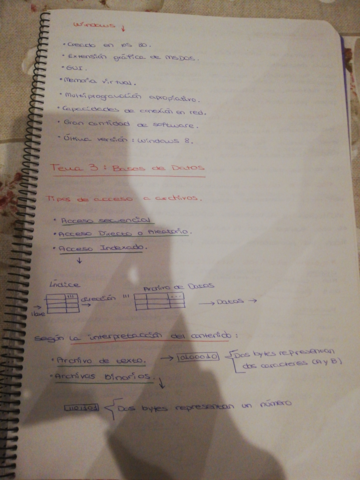 Windows ↓
• Creado en 85
• Extensión gráfica de MSDOS.
• GUI.
• Memoria virtual.
• Multiprogramación apropiativo.
• Capacidades de conexión en red.
• Gran cantidad de software.
• Última versión: Windows
Tema 3: Bases de Datos
Tipos de acceso a archivos.
• Acceso secuencial
• Acceso Directo o Aleatorio.
• Acceso Indexado.
↓
Índice Archivo de Datos
dirección → Datos →
Según la interpretación del contenido:
• Archivo de texto. → Dos bytes representan
dos caracteres (A y B)
• Archivos Binarios. ↓
Dos bytes representan un número